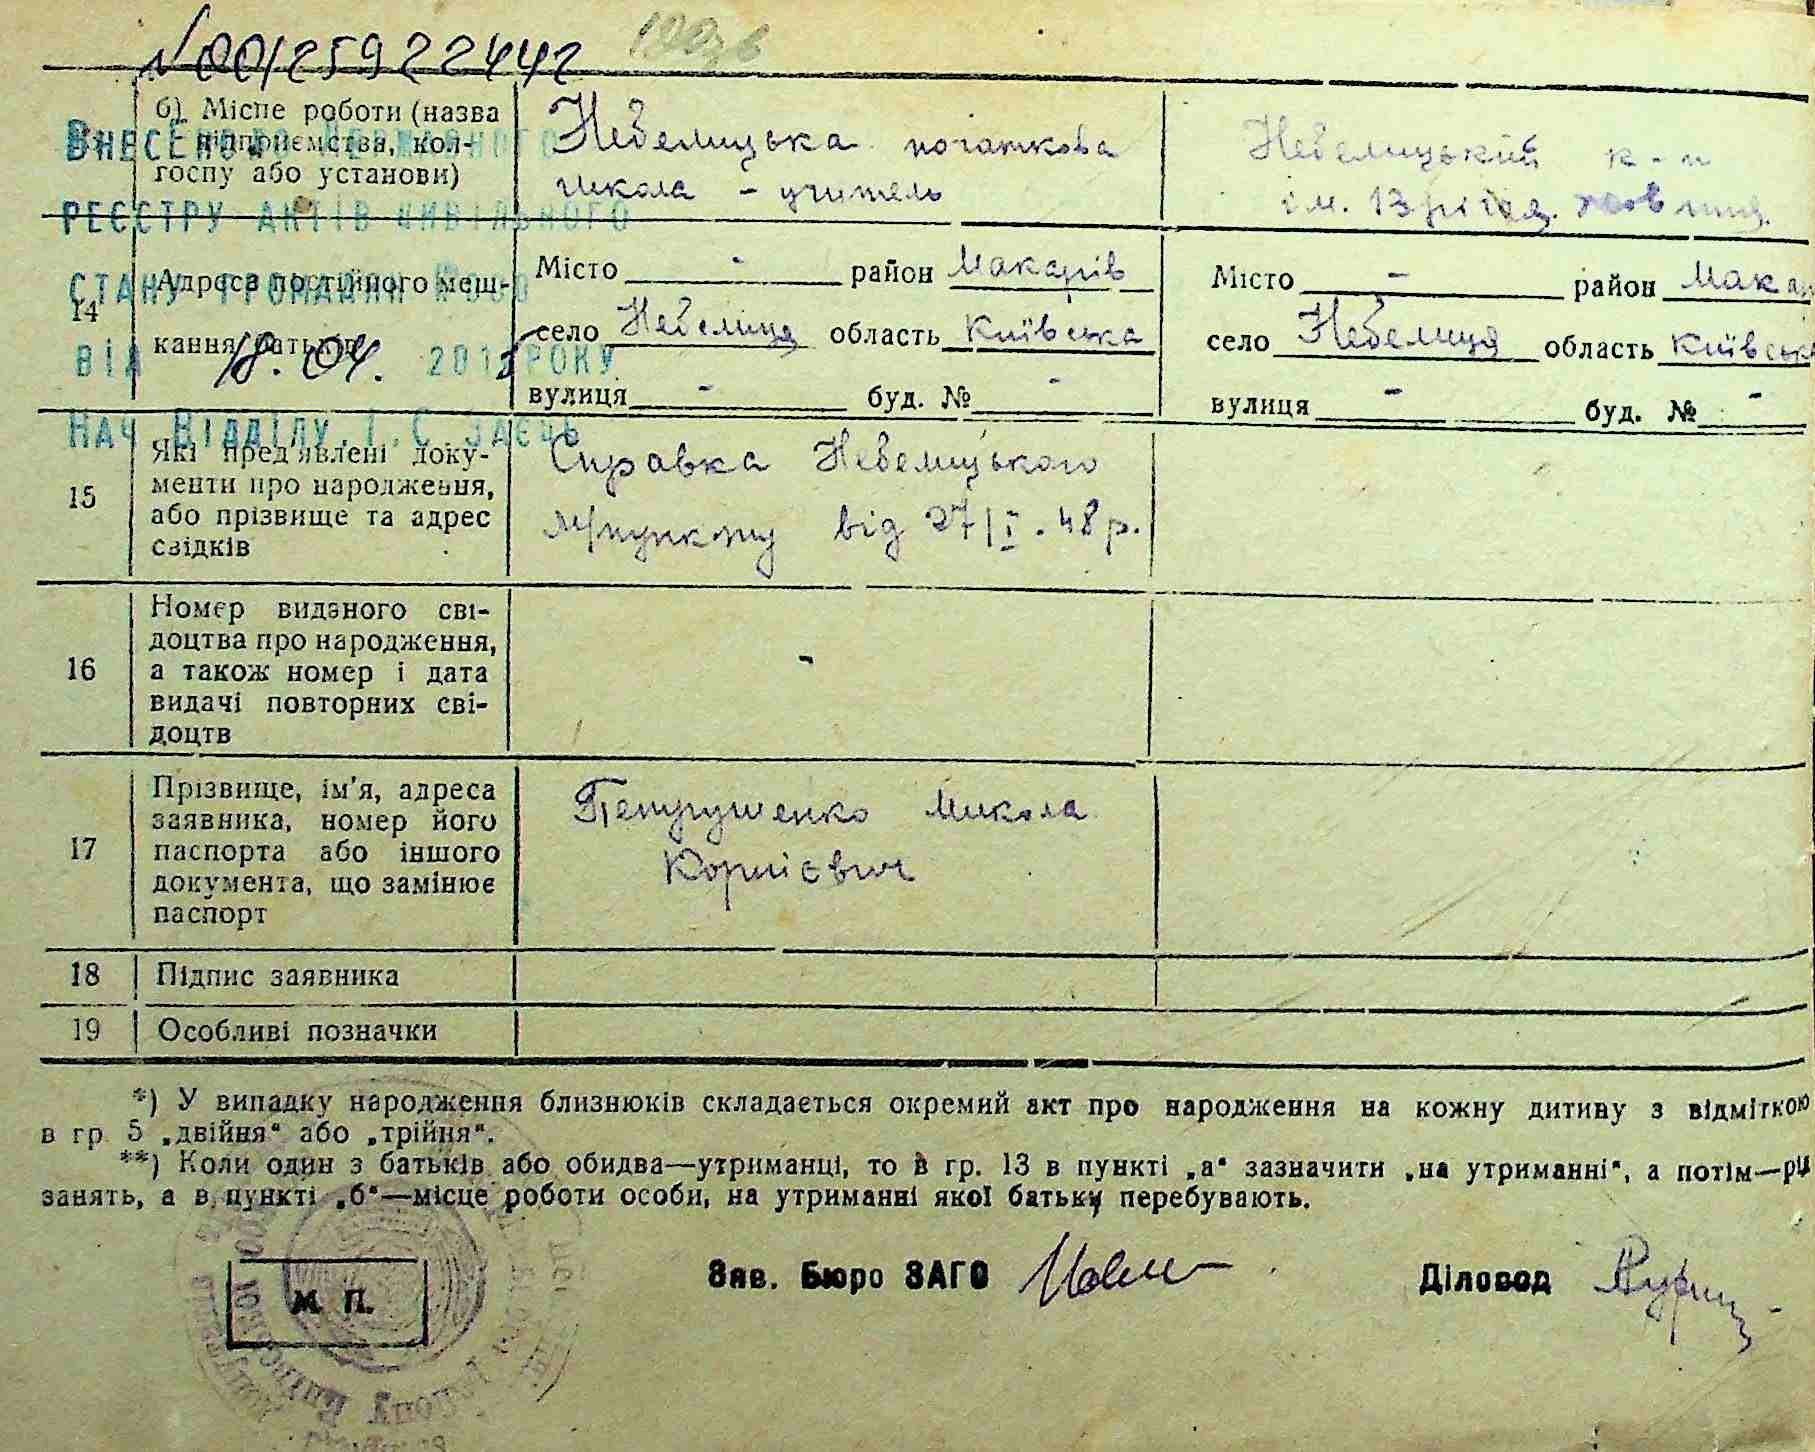 №00125922442
б) Місце роботи (назва
підприємства, кол-
госпу або установи)
Небелицька початкова
школа - учитель
Небелицький к-п
ім. 13 річ. жовтня
Внесено до Державного
реєстру актів цивільного
стану громадян
від 18.04. 2013 року
Нач. Відділу І.С. Заєць
14
Адреса постійного меш-
кання батьків
Місто - район Макарів
село Небелиця область Київська
вулиця - буд. № -
Місто - район Мака
село Небелиця область Київськ
вулиця - буд. № -
15
Які пред'явлені доку-
менти про народження,
або прізвище та адрес
свідків
Справка Небелицького
м/пункту від 27/I.48р.
16
Номер виданого сві-
доцтва про народження,
а також номер і дата
видачі повторних сві-
доцтв
-
17
Прізвище, ім'я, адреса
заявника, номер його
паспорта або іншого
документа, що замінює
паспорт
Петрушенко Микола
Корнієвич
18
Підпис заявника
19
Особливі позначки
*) У випадку народження близнюків складається окремий акт про народження на кожну дитину з відміткою
в гр 5 „двійня“ або „трійня“.
**) Коли один з батьків або обидва—утриманці, то в гр. 13 в пункті „а“ зазначити „на утриманні“, а потім—рід
занять, а в пункті „б“—місце роботи особи, на утриманні якої батьки перебувають.
Зав. Бюро ЗАГС
Діловод
М. П.